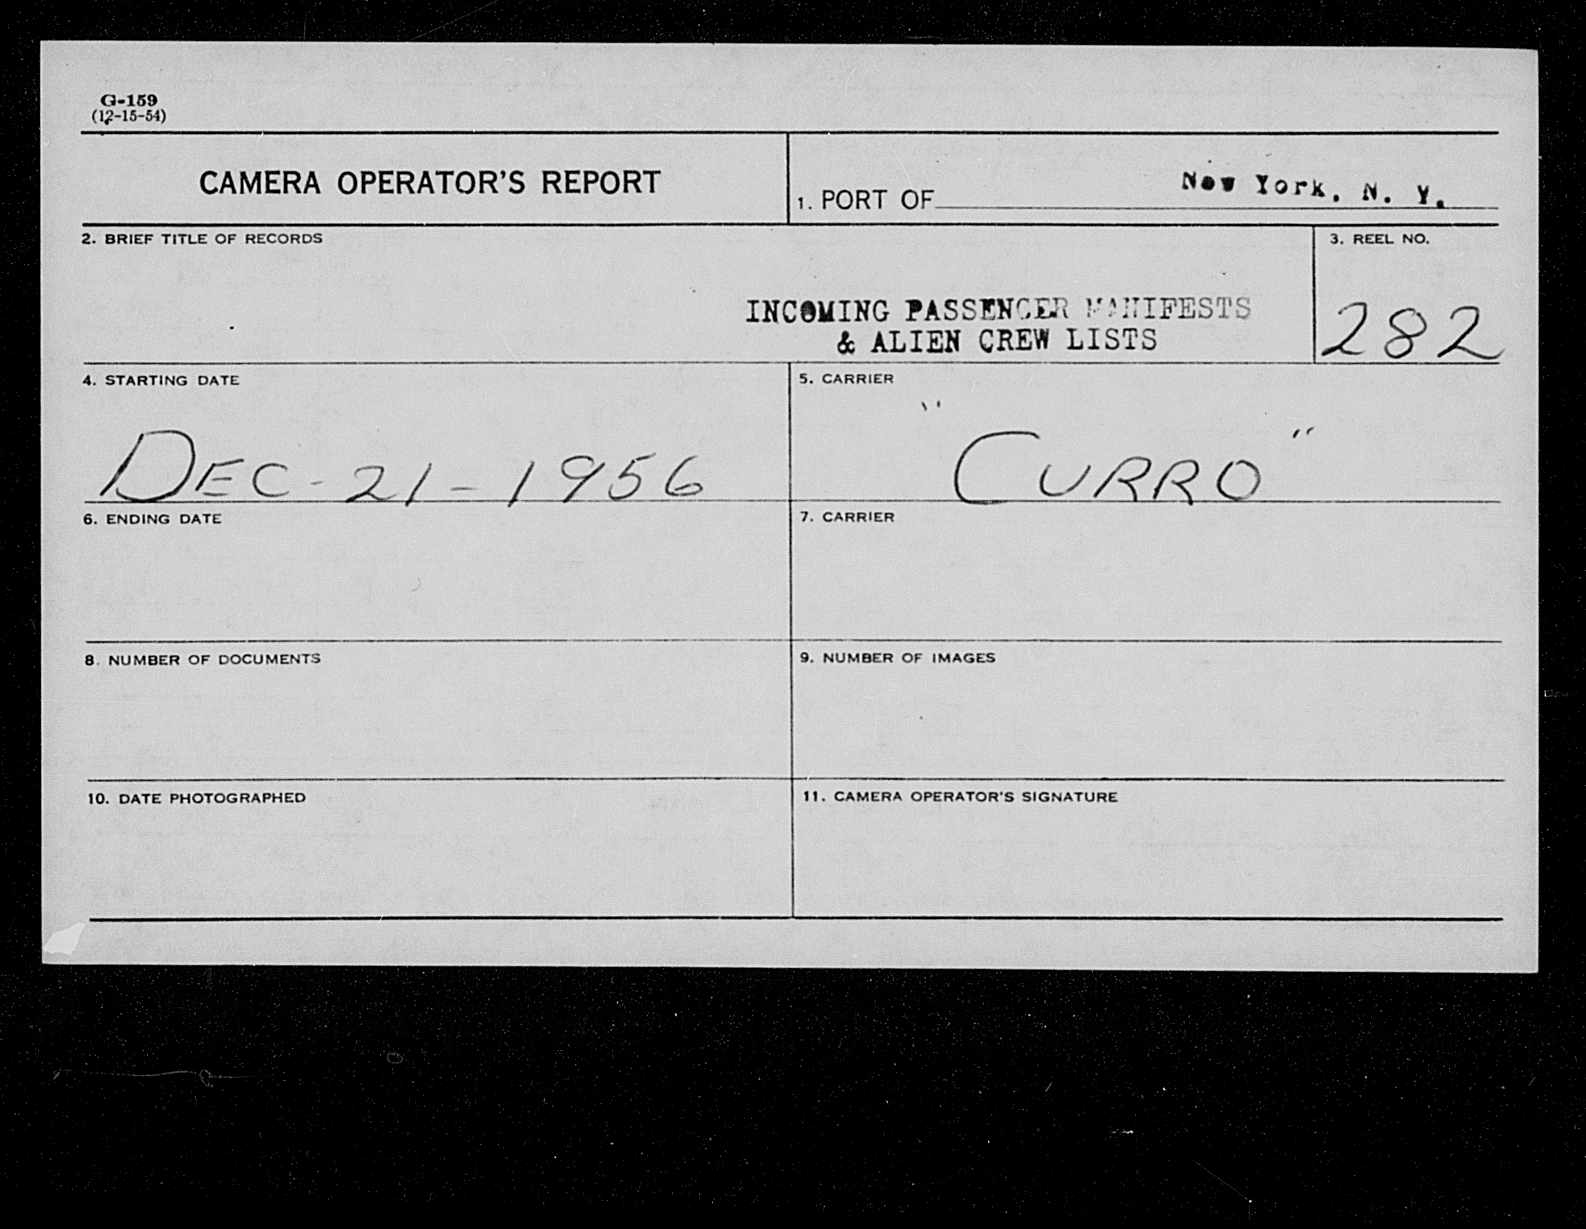 G-159
(12-15-54)
CAMERA OPERATOR'S REPORT
1. PORT OF New York, N. Y.
2. BRIEF TITLE OF RECORDS
INCOMING PASSENGER MANIFESTS
& ALIEN CREW LISTS
3. REEL NO.
282
4. STARTING DATE
DEC - 21 - 1956
5. CARRIER
"CURRO"
6. ENDING DATE
7. CARRIER
8. NUMBER OF DOCUMENTS
9. NUMBER OF IMAGES
10. DATE PHOTOGRAPHED
11. CAMERA OPERATOR'S SIGNATURE